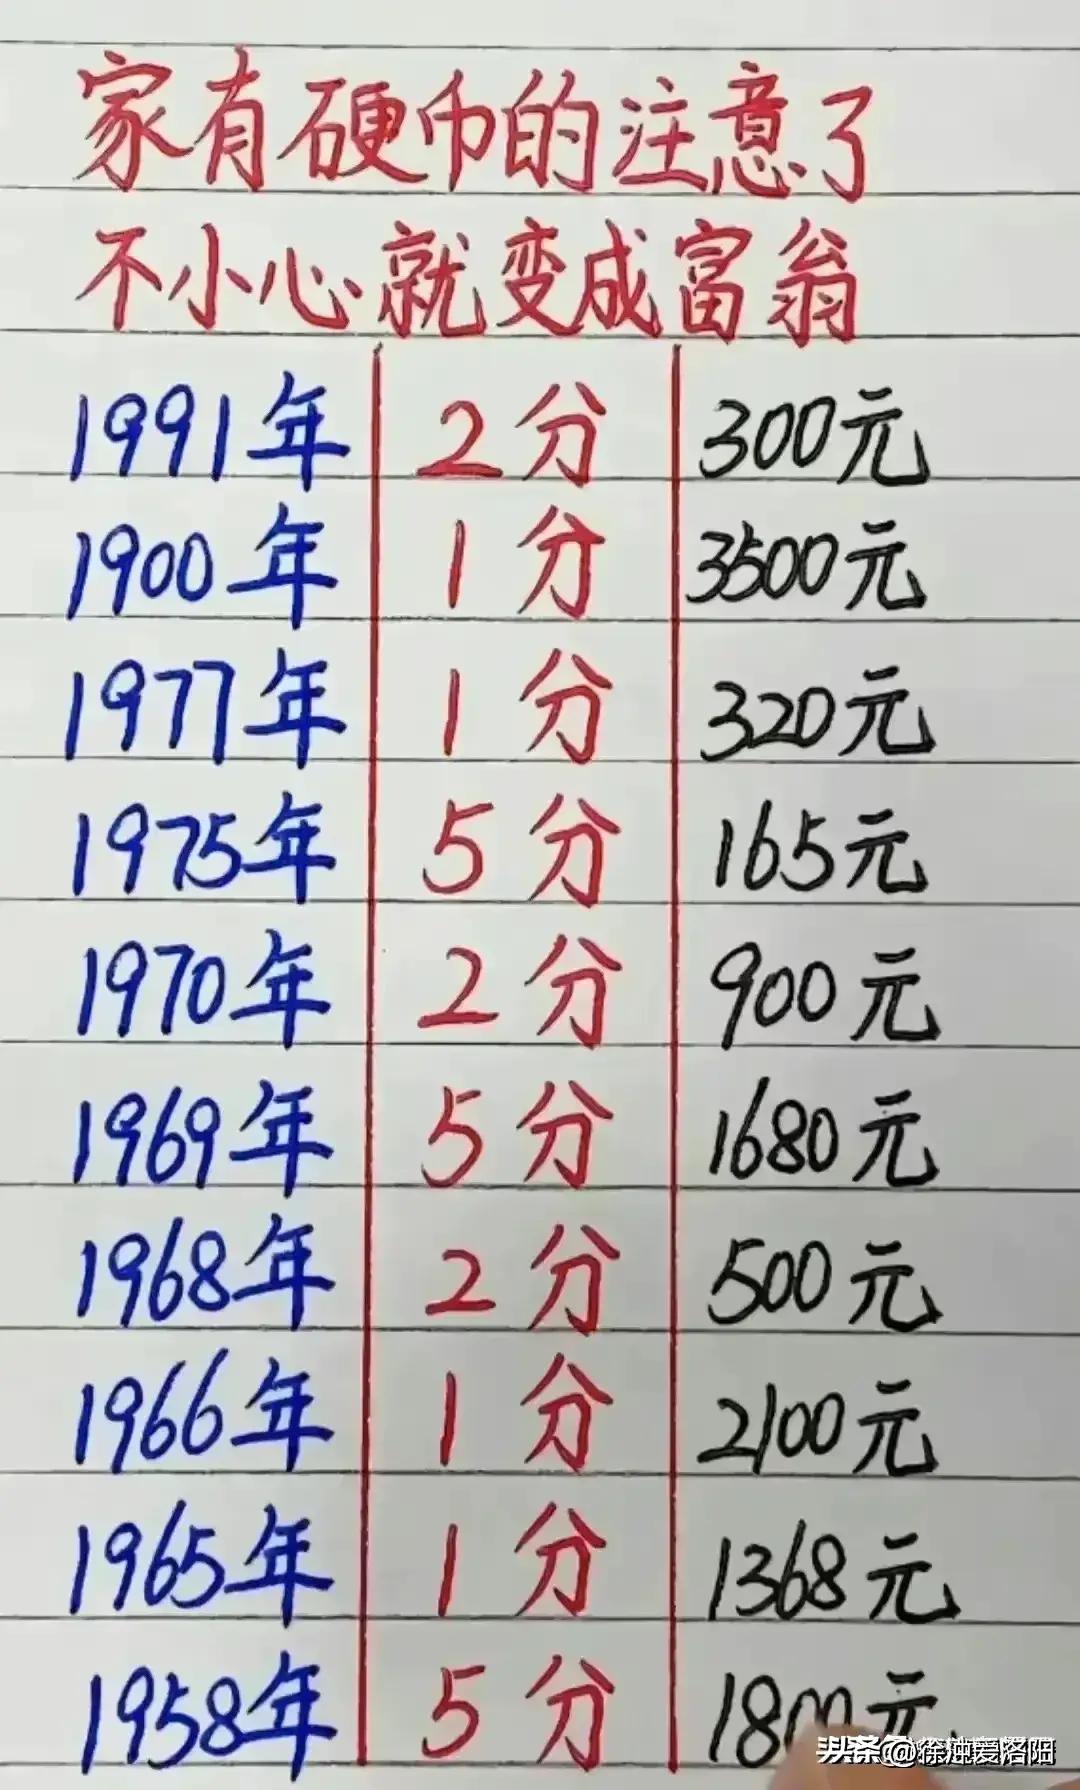 家有硬币的注意了
不小心就变成富翁
1991年 2分 300元
1900年 1分 3500元
1977年 1分 320元
1975年 5分 165元
1970年 2分 900元
1969年 5分 1680元
1968年 2分 500元
1966年 1分 2100元
1965年 1分 1368元
1958年 5分 1800元
头条 @徐烛爱洛阳